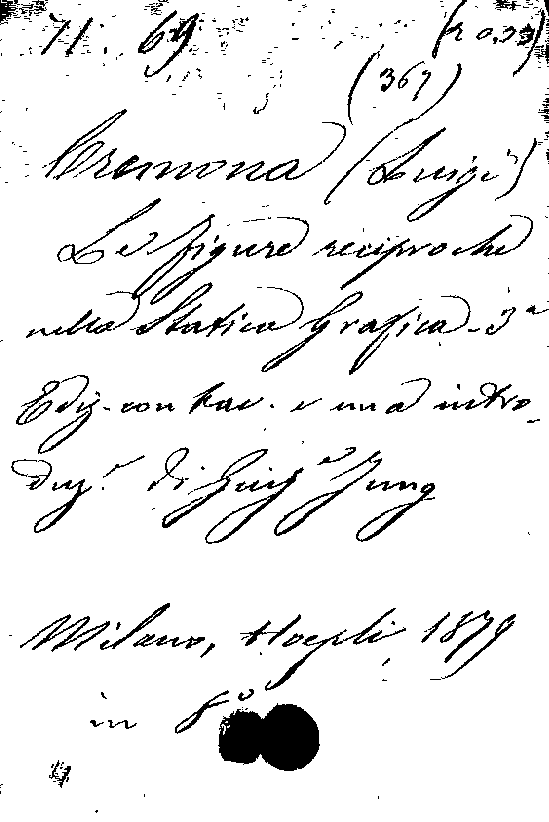 71. 69
(367)
Cremona (Luigi)
Le figure reciproche
nella Statica Grafica - 3ª
Ediz. con tav. e una intro-
duz.e di Giuse Jung
Milano, Hoepli 1879
in 8º